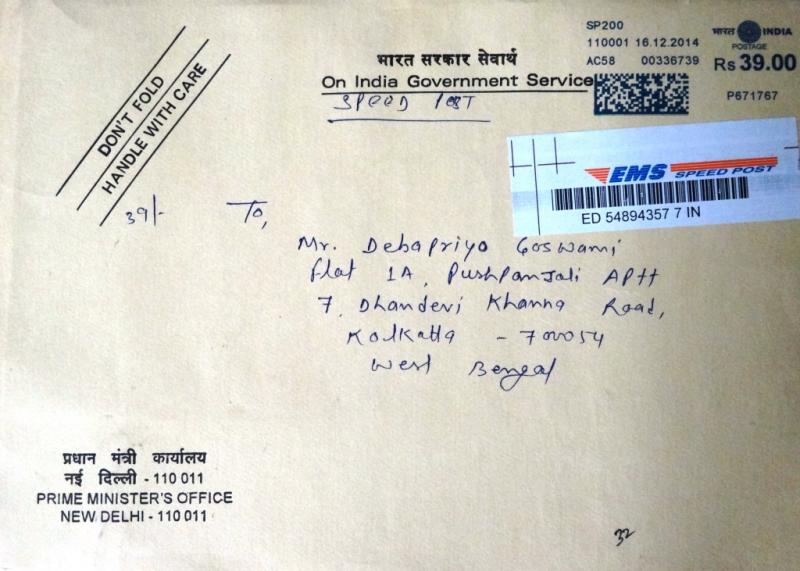 SP200
110001 16.12.2014
AC58 00336739
भारत INDIA
POSTAGE
Rs 39.00
P671767
भारत सरकार सेवार्थ
On India Government Service
SPEED POST
DON'T FOLD
HANDLE WITH CARE
EMS SPEED POST
ED 54894357 7 IN
39/-
To,
Mr. Debapriyo Goswami
Flat 1A, Pushpanjali APtt
7, Dhandevi Khanna Road,
Kolkatta - 700054
West Bengal
प्रधान मंत्री कार्यालय
नई दिल्ली - 110 011
PRIME MINISTER'S OFFICE
NEW DELHI - 110 011
32